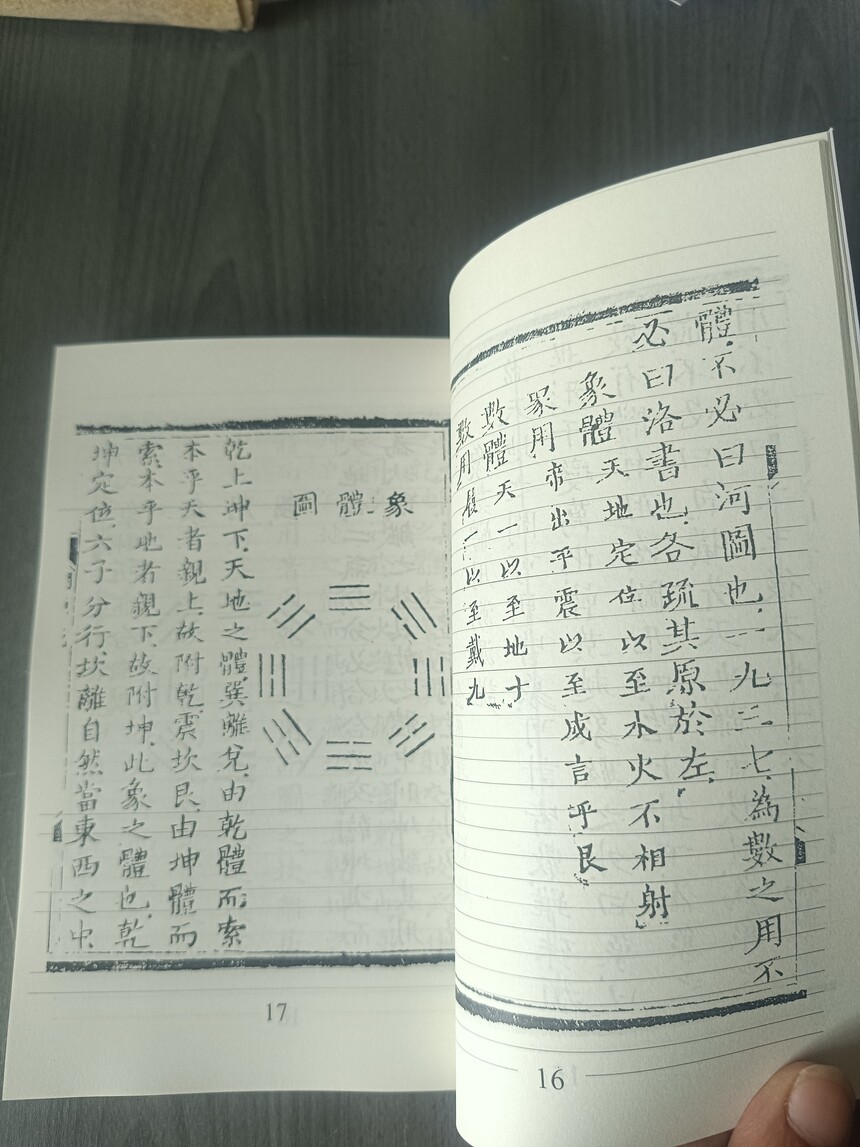 體不必曰河圖也一九三七為數之用不
必曰洛書也各疏其原於左
象體天地定位以至水火不相射
象用帝出乎震以至成言乎艮
數體天一以至地十
數用履一以至戴九
16
象體圖
乾上坤下天地之體巽離兌由乾體而索
本乎天者親上故附乾震坎艮由坤體而
索本乎地者親下故附坤此象之體也乾
坤定位六子分行坎離自然當東西之中
17